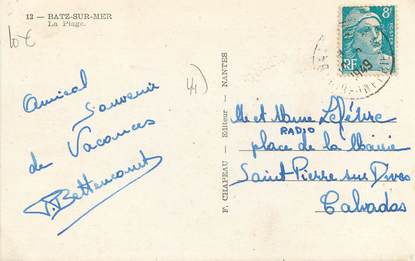 12 — BATZ-SUR-MER
La Plage.
10€
44
Amical Souvenir
de Vacances
Bettencourt
F. CHAPEAU - Editeur - NANTES
8F
RF
Mr et Mme Lefèvre
RADIO
place de la Mairie
Saint Pierre sur Dives
Calvados